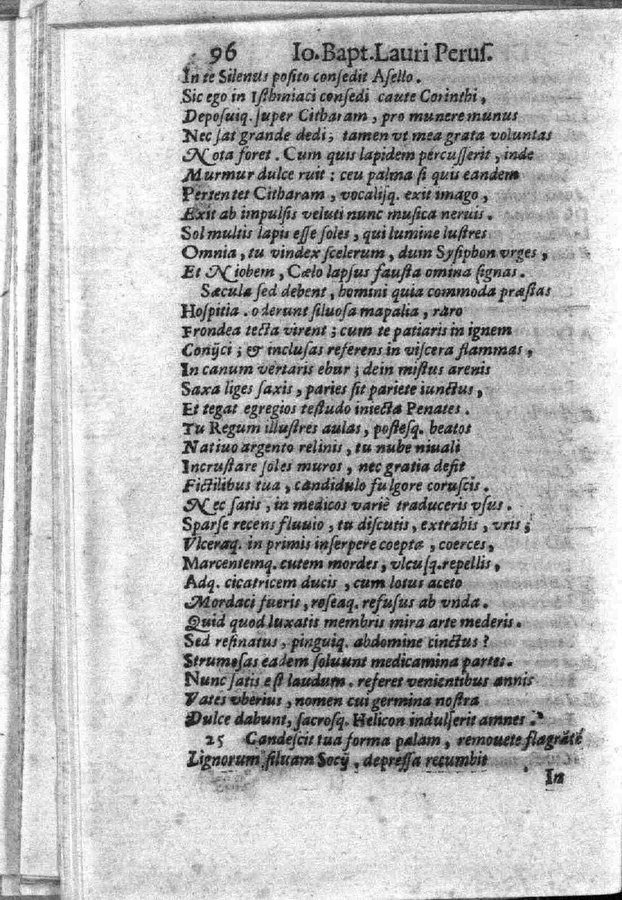 96 Io. Bapt. Lauri Perus.
In te Silenus posito consedit Asello.
Sic ego in Isthmiaci consedi caute Corinthi,
Deposuiq. super Citharam, pro munere munus
Nec sat grande dedi; tamen vt mea grata voluntas
Nota foret. Cum quis lapidem percusserit, inde
Murmur dulce ruit: ceu palma si quis eandem
Pertentet Citharam, vocalisq. exit imago,
Exit ab impulsis veluti nunc musica neruis.
Sol multis lapis esse soles, qui lumine lustres
Omnia, tu vindex scelerum, dum Sysiphon vrges,
Et Niobem, Cælo lapsus fausta omina signas.
Sæcula sed debent, homini quia commoda præstas
Hospitia. oderunt siluosa mapalia, raro
Frondea tecta virent; cum te patiaris in ignem
Conijci; & inclusas referens in viscera flammas,
In canum vertaris ebur; dein mistus arenis
Saxa liges saxis, paries sit pariete iunctus,
Et tegat egregios testudo iniecta Penates.
Tu Regum illustres aulas, postesq. beatos
Natiuo argento relinis, tu nube niuali
Incrustare soles muros, nec gratia desit
Fictilibus tua, candidulo fulgore coruscis.
Nec satis, in medicos variè traduceris vsus.
Sparse recens fluuio, tu discutis, extrahis, vris;
Vlceraq. in primis inserpere coepta, coerces,
Marcentemq. cutem mordes, vlcusq. repellis,
Adq. cicatricem ducis, cum lotus aceto
Mordaci fueris, roseaq. refusus ab vnda.
Quid quod luxatis membris mira arte mederis.
Sed resinatus, pinguiq. abdomine cinctus?
Strumosas eadem soluunt medicamina partes.
Nunc satis est laudum. referet venientibus annis
Vates vberius, nomen cui germina nostra
Dulce dabunt, sacrosq. Helicon indulserit amnes.
25 Candescit tua forma palam, remouete flagrãtẽ
Lignorum siluam Socij, depressa recumbit
In